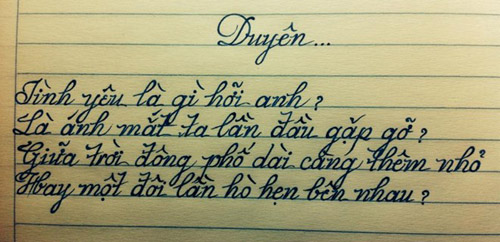 Duyên...
Tình yêu là gì hỡi anh ?
Là ánh mắt ta lần đầu gặp gỡ ?
Giữa trời đông phố dài càng thêm nhỏ
Hay một đôi lần hò hẹn bên nhau ?